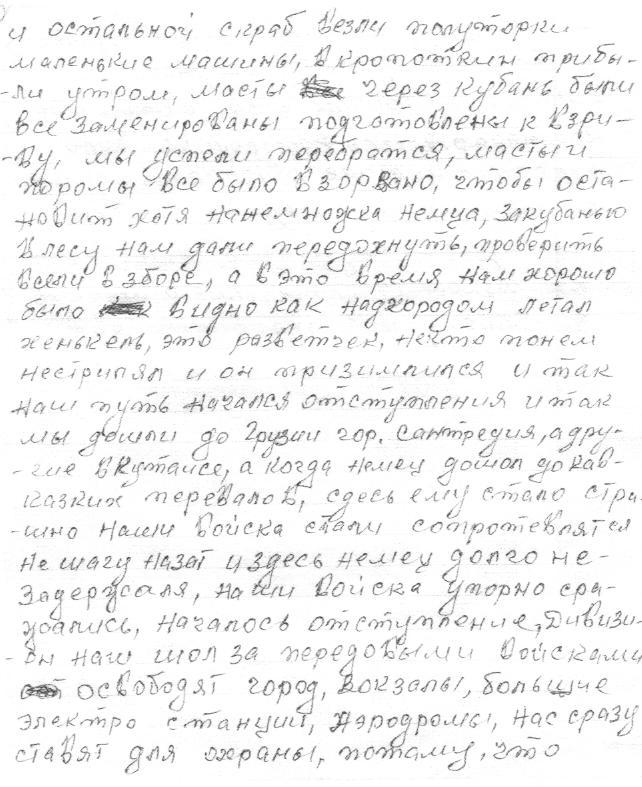 и остальной скраб везли полуторки
маленькие машины, в кропоткин прибы-
-ли утром, масты через кубань были
все заменированы подготовлены к взри-
-ву, мы успели перебратся, масты и
поромы все было взорвано, чтобы оста-
новит хотя нанемножка немца, закубанью
в лесу нам дали передохнуть, проверить
всели взборе, а в это время нам хорошо
было видно как надгородом летал
хенькель, это разветчек, некто понем
нестрилял и он призимлился и так
наш путь начался отступления и так
мы дошли до Грузии гор. Сантредия, а дру-
-гие в Кутаисе, а когда немец дошол до кав-
казких перевалов, сдесь ему стало стра-
-шно наши войска стали сопротевлятся
не шагу назат и здесь немец долго не-
задержаля, наши войска упорно сра-
жались, началось отступление, Дивизи-
-он наш шол за передовыми войсками
освободят город, вокзалы, большие
электро станции, аэродромы, нас сразу
ставят для охраны, потаму, что